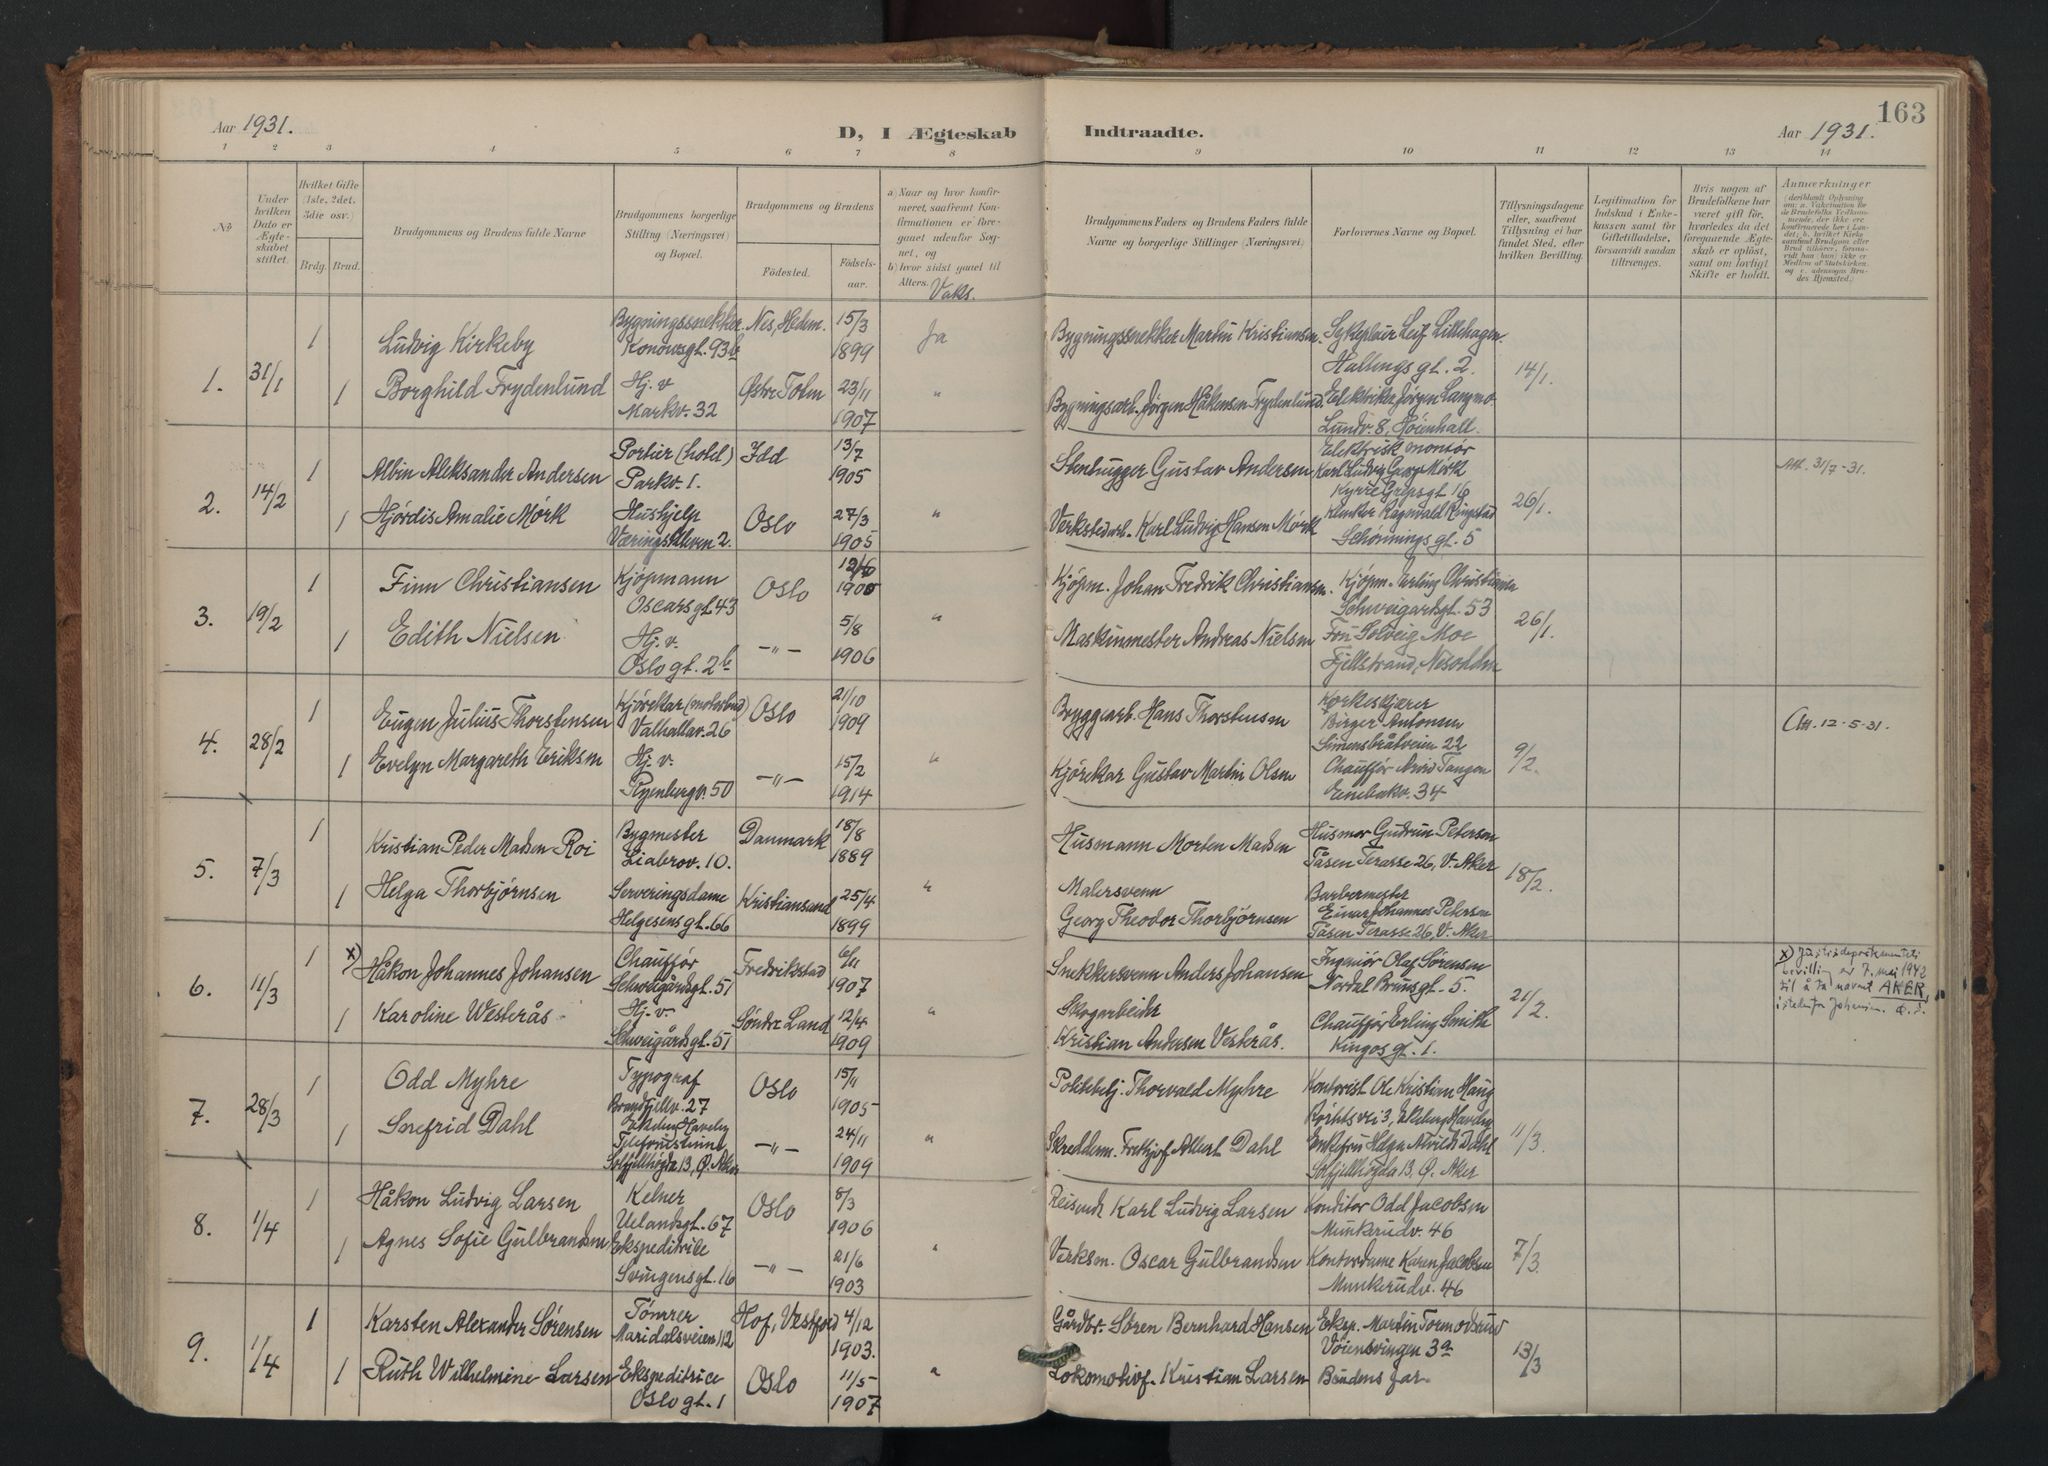 163
Aar 1931.
D, I Ægteskab Indtraadte.
Aar 1931.
1 2 3 4 5 6 7 8 9 10 11 12 13 14
No
Under hvilken Dato er Ægteskabet stiftet.
Hvilket Gifte (1ste, 2det, 3die osv.)
Brdg. Brud.
Brudgommens og Brudens fulde Navne
Brudgommens borgerlige Stilling (Næringsvei) og Bopæl.
Brudgommens og Brudens
Fødested. Fødsels-aar.
a) Naar og hvor konfirmeret, saafremt Konfirmationen er foregaaet udenfor Sognet, og
b) hvor sidst gaaet til Alters.
Vaks.
Brudgommens Faders og Brudens Faders fulde Navne og borgerlige Stillinger (Næringsvei)
Forlovernes Navne og Bopæl.
Tillysningsdagene eller, saafremt Tillysning ei har fundet Sted, efter hvilken Bevilling.
Legitimation for Indskud i Enkekassen samt for Giftetilladelse, forsaavidt saadan tiltrænges.
Hvis nogen af Brudefolkene har været gift før, hvorledes da det foregaaende Ægteskab er opløst, samt om lovligt Skifte er holdt.
Anmærkninger
1. 31/1
1 Ludvig Kirkeby Bygningssnekker Konowsgt. 93b Nes, Hedm. 15/3 1899 Ja Bygningssnekker Martin Kristiansen Sykepleier Leif Lillehagen Hallings gt. 2. 14/1.
1 Borghild Frydenlund Hj. v Markv. 32 Østre Toten 23/11 1907 " Bygningsarb. Jørgen Håkensen Frydenlund. Elektriker Jørgen Langmo Lundv. 8, Høienhall.
2. 14/2
1 Albin Aleksander Andersen Portier (hotel) Parkv. 1. Idd 13/7 1905 Stenhugger Gustav Andersen Elektrisk montør Karl Ludvig Georg Mørk Kyrre Grepsgt 16 26/1. Att. 31/7-31.
1 Hjørdis Amalie Mørk Hushjelp Væringskleven 2. Oslo 27/3 1905 " Verkstedarb. Karl Ludvig Hansen Mørk Klinker Ragnvald Ringstad Schønnings gt. 5
3. 19/2
1 Finn Christiansen Kjøpmann Oscarsgt. 43 Oslo 12/6 1900 Kjøpm. Johan Fredrik Christiansen. Kjøpm. Erling Christiansen Schweigardsgt. 53 26/1.
1 Edith Nielsen Hj. v. Oslo gt. 2b -"- 5/8 1906 " Maskinmester Andreas Nielsen Fru Solveig Moe Fjellstrand, Nesodden
4. 28/2
1 Eugen Julius Thorstensen Kjørekar (motorbud) Valhallav. 26 Oslo 21/10 1909 Bryggearb. Hans Thorstensen Korkeskjærer Birger Antonsen Simensbråtveien 22 9/2. Att. 12-5-31.
1 Evelyn Margareth Eriksen Hj. v. Ryenbergv. 50 -"- 15/2 1914 " Kjørekar Gustav Martin Olsen Chauffør Arvid Tangen Enebakv. 34
5. 7/3
1 Kristian Peder Madsen Roi Bygmester Liabrov. 10. Danmark 18/8 1889 Husmann Morten Madsen Husmor Gudrun Petersen Tåsen Terasse 26, V. Aker 18/2.
1 Helga Thorbjørnsen Serveringsdame Helgesens gt. 66 Kristiansand 25/4 1899 " Malersvenn Georg Theodor Thorbjørnsen Barbermester Einar Johannes Petersen Tåsen Terasse 26, V. Aker
6. 11/3
1 x) Håkon Johannes Johansen Chauffør Schweigårdsgt. 51 Fredrikstad 6/11 1907 Snekkersvenn Anders Johansen Ingeniør Olaf Sørensen Nordal Brunsgt. 5. 21/2. x) Justisdepartementets bevilling av 7. mai 1942 til å ta navnet AKER, istedenfor Johansen.
1 Karoline Westerås Hj. v. Schweigårdsgt. 51 Søndre Land 12/4 1909 " Skogarbeider Kristian Andersen Vesterås. Chauffør Erling Smith Kingos gt. 1.
7. 28/3
1 Odd Myhre Typograf Brandfjellv. 27 Ekeberg Haveby Oslo 15/11 1905 Politibetj. Thorvald Myhre Kontorist Ole Kristian Haug 3, Ekeberg Haveby 11/3.
1 Snefrid Dahl Telefonistinne Solfjellhøgda 13, Ø. Aker -"- 24/11 1909 " Skreddem. Fritjof Albert Dahl Enkefru Helga Alvilde Dahl Solfjellhøgda 13, Ø. Aker
8. 1/4
1 Håkon Ludvig Larsen Kelner Uelandsgt. 67 Oslo 8/3 1906 Reisende Karl Ludvig Larsen Konditor Odd Jacobsen Munkerudv. 46 7/3.
1 Agnes Sofie Gulbrandsen Ekspeditrice Svingensgt. 16 -"- 21/6 1903 " Verksm. Oscar Gulbrandsen Kontordame Karen Jacobsen Munkerudv. 46
9. 1/4
1 Karsten Alexander Sørensen Tømrer Maridalsveien 112 Hof, Vestfold 4/12 1903. Gårdbr. Søren Bernhard Hansen Eksp. Martin Tormodsrud Vøiensvingen 3a 13/3
1 Ruth Wilhelmine Larsen Ekspeditrice Oslo gt. 1 Oslo 11/5 1907 " Lokomotivf. Kristian Larsen Brudens far